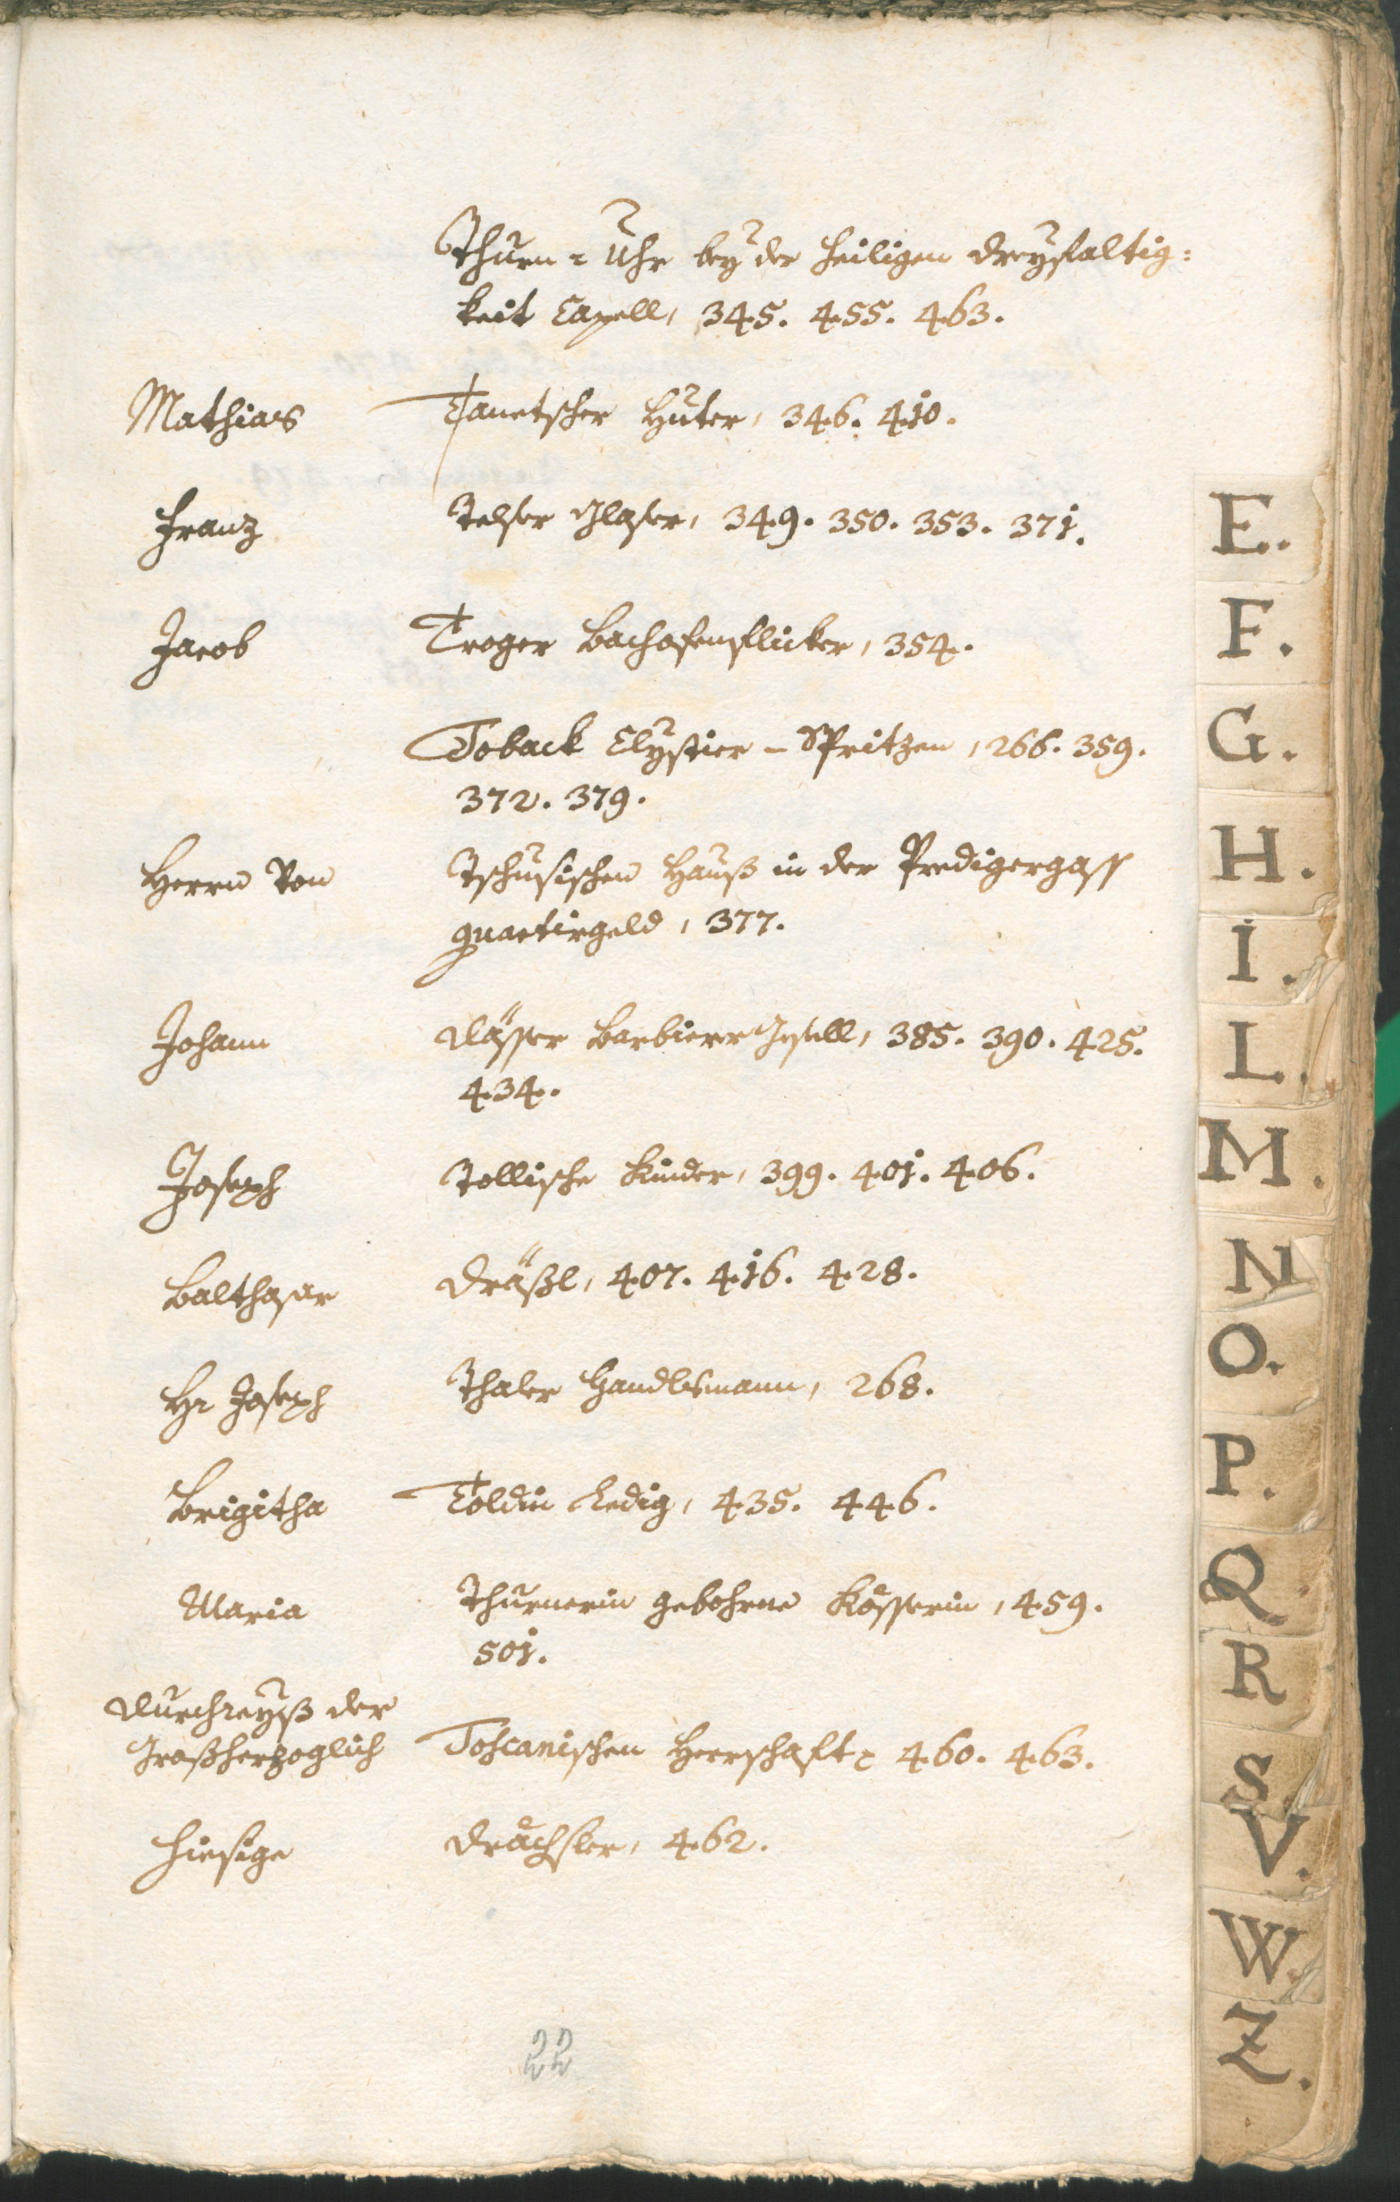 Thurn = Uhr bey der heiligen dreyfaltig:
keit Capell, 345. 455. 463.
Mathias Tanetscher Huter, 346. 410.
Franz Telser Glaser, 349. 350. 353. 371.
Jacob Troger Bachofenflicker, 354.
Toback Clystier - Spritzen, 266. 359.
372. 379.
Herrn Von Tschusischen Hauß in der Predigergass
quartirgeld, 377.
Johann Barbierer Gesell, 385. 390. 425.
434.
Joseph Tollische Kinder, 399. 401. 406.
Balthasar Dräßl, 407. 416. 428.
Hr Joseph Thaler Handlsmann, 268.
Brigitha Toldin Ledig, 435. 446.
Maria Thurnerin gebohrne Kösserin, 459.
501.
Durchreyß der
Großherzoglich Toscanischen Herrschaft 460. 463.
Hiesige Drächsler, 462.
22
E.
F.
G.
H.
I.
L.
M.
N
O.
P.
Q
R
S.
V.
W.
Z.